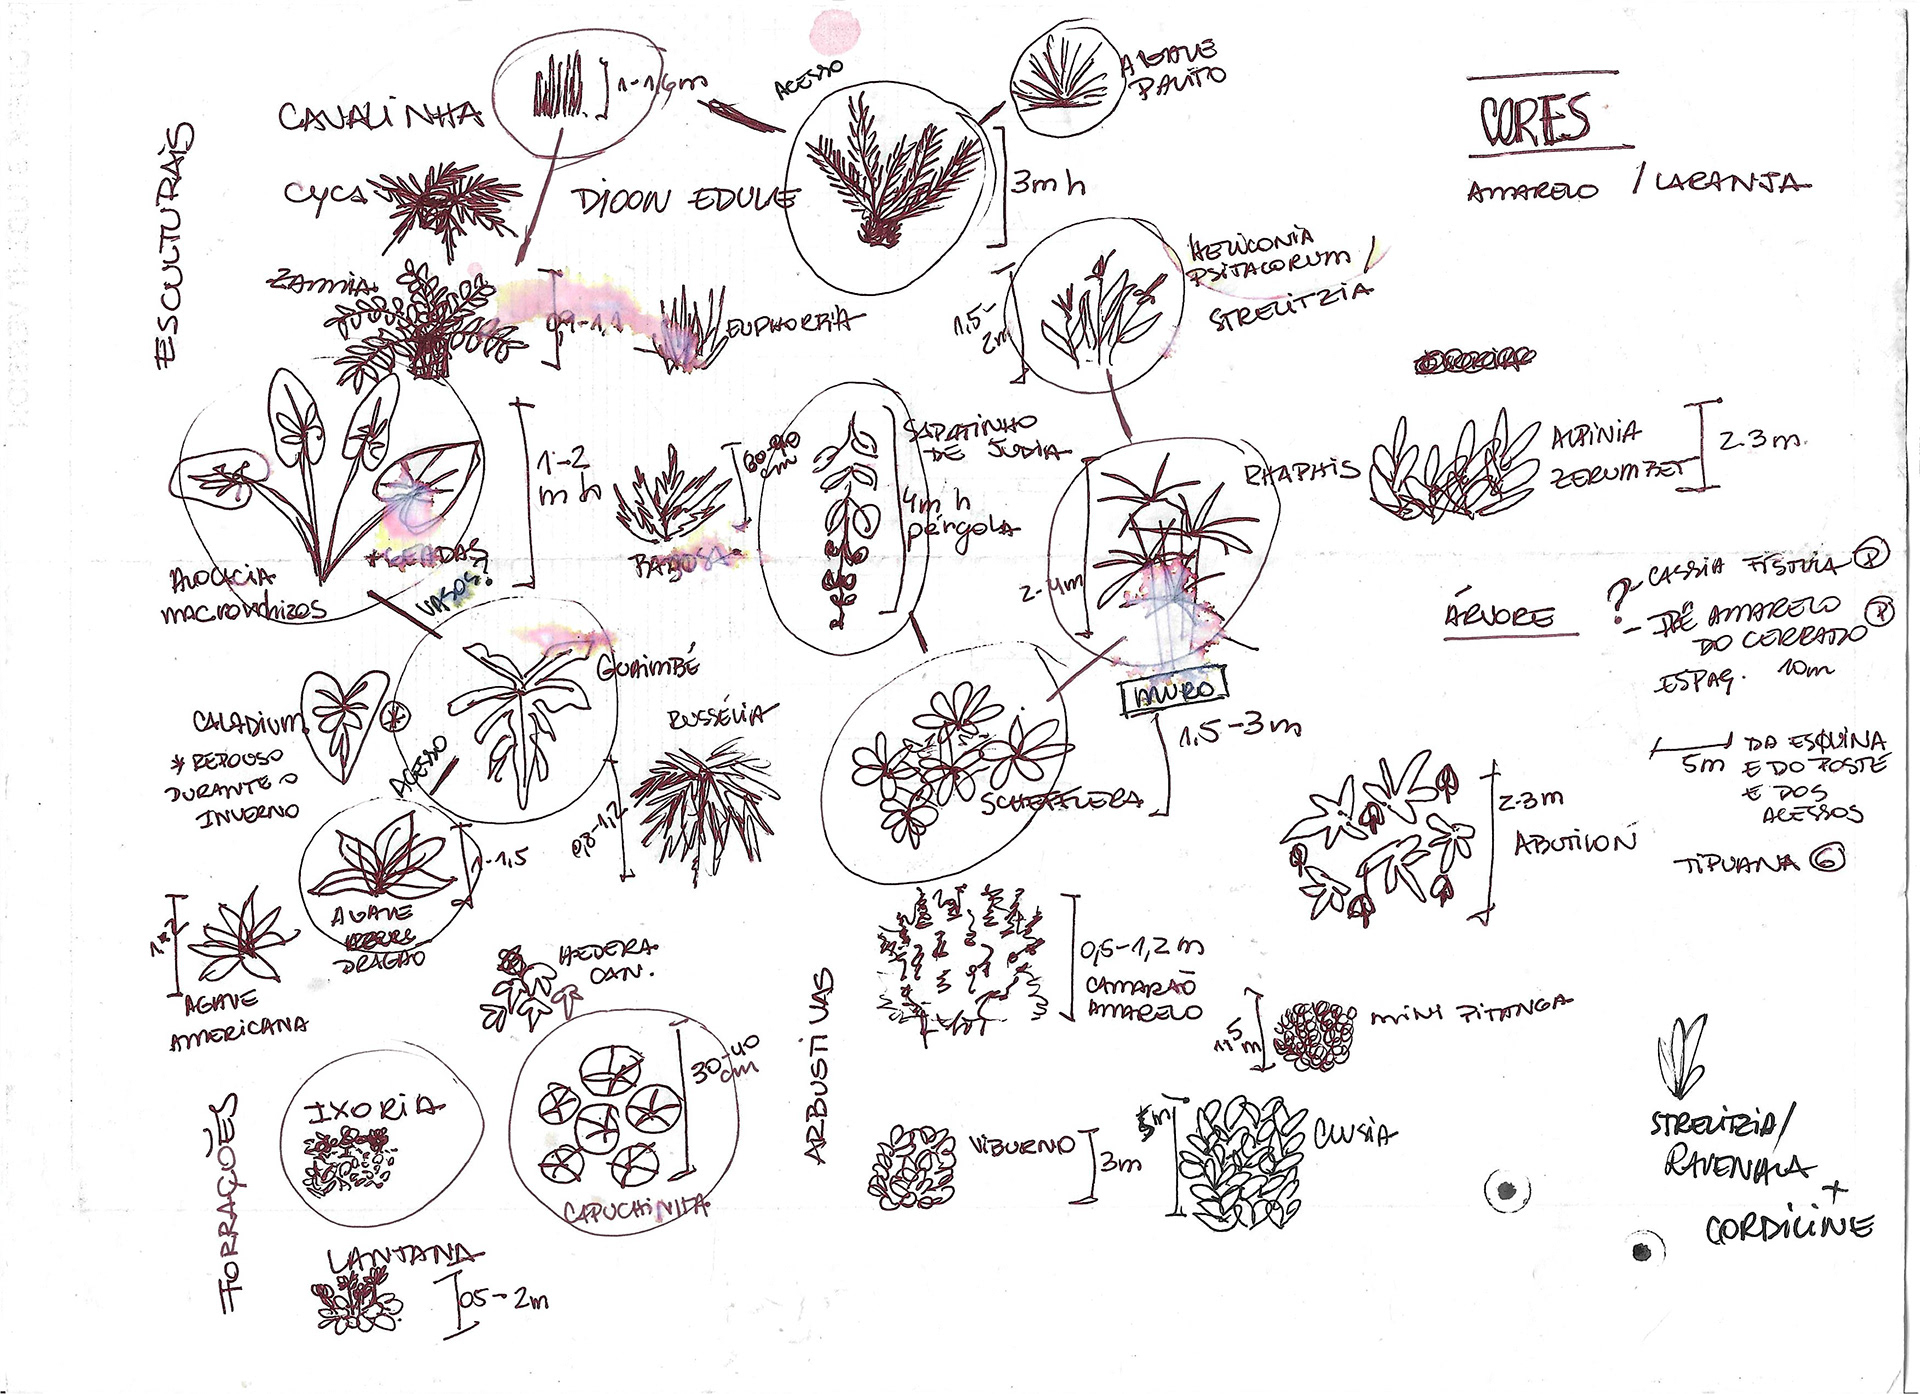 ESCULTURAIS
CAVALINHA
1-1,6m
ACESSO
AGAVE
PALITO
CORES
AMARELO / LARANJA
CYCA
DIOON EDULE
3m h
HELICONIA
PSITACORUM /
STRELITZIA
1,5-
2m
ZAMIA
0,9-1,1
EUPHORBIA
1-2
m h
60-90
cm
SAPATINHO
DE JUDIA
4m h
pérgola
RHAPHIS
2-4m
ALPINIA
ZERUMBET
2-3m
*GEADAS?
VASOS?
BABOSA
ALOCACIA
MACRORRHIZOS
ÁRVORE
CASSIA FÍSTULA
?
- IPÊ AMARELO
DO CERRADO
ESPAÇ. 10m
GUAIMBÉ
MURO
1,5-3m
CALADIUM
* REPOUSO
DURANTE O
INVERNO
ACESSO
RUSSÉLIA
0,8-1,2
SCHEFFLERA
5m
DA ESQUINA
E DO POSTE
E DOS
ACESSOS
TIPUANA G
2-3m
ABUTILON
1-1,5
AGAVE
DRAGÃO
1-2
AGAVE
AMERICANA
HEDERA
CAN.
ARBUSTIVAS
0,5-1,2m
CAMARÃO
AMARELO
MINI PITANGA
FORRAÇÕES
IXORIA
30-40
cm
CAPUCHINHA
VIBURNO
3m
5m
CLUSIA
STRELITZIA/
RAVENALA
+
CORDILINE
LANTANA
0,5-2m